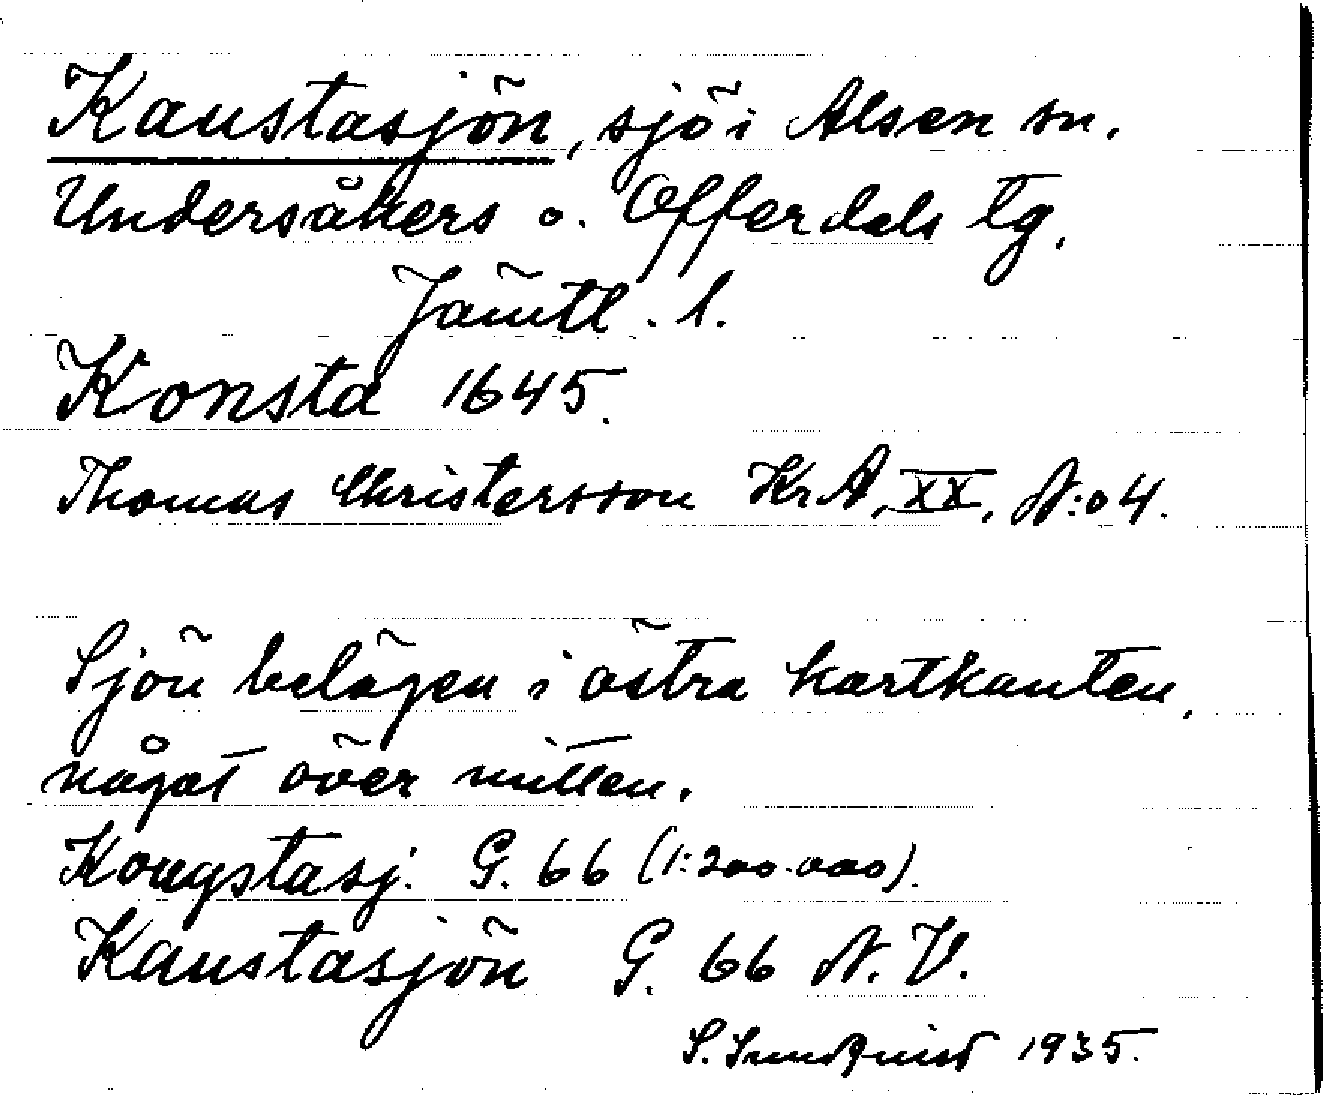 Kaustasjön, sjö i Alsen sn.
Undersåkers o. Offerdals tg.
Jämtl. l.
Konsta 1645.
Thomas Christersson KrA, XX, N:o 4.
Sjön belägen i östra kartkanten,
något över mitten.
Kougstasj. G. 66 (1:200.000).
Kaustasjön G. 66 N. V.
S. Sundquist 1935.